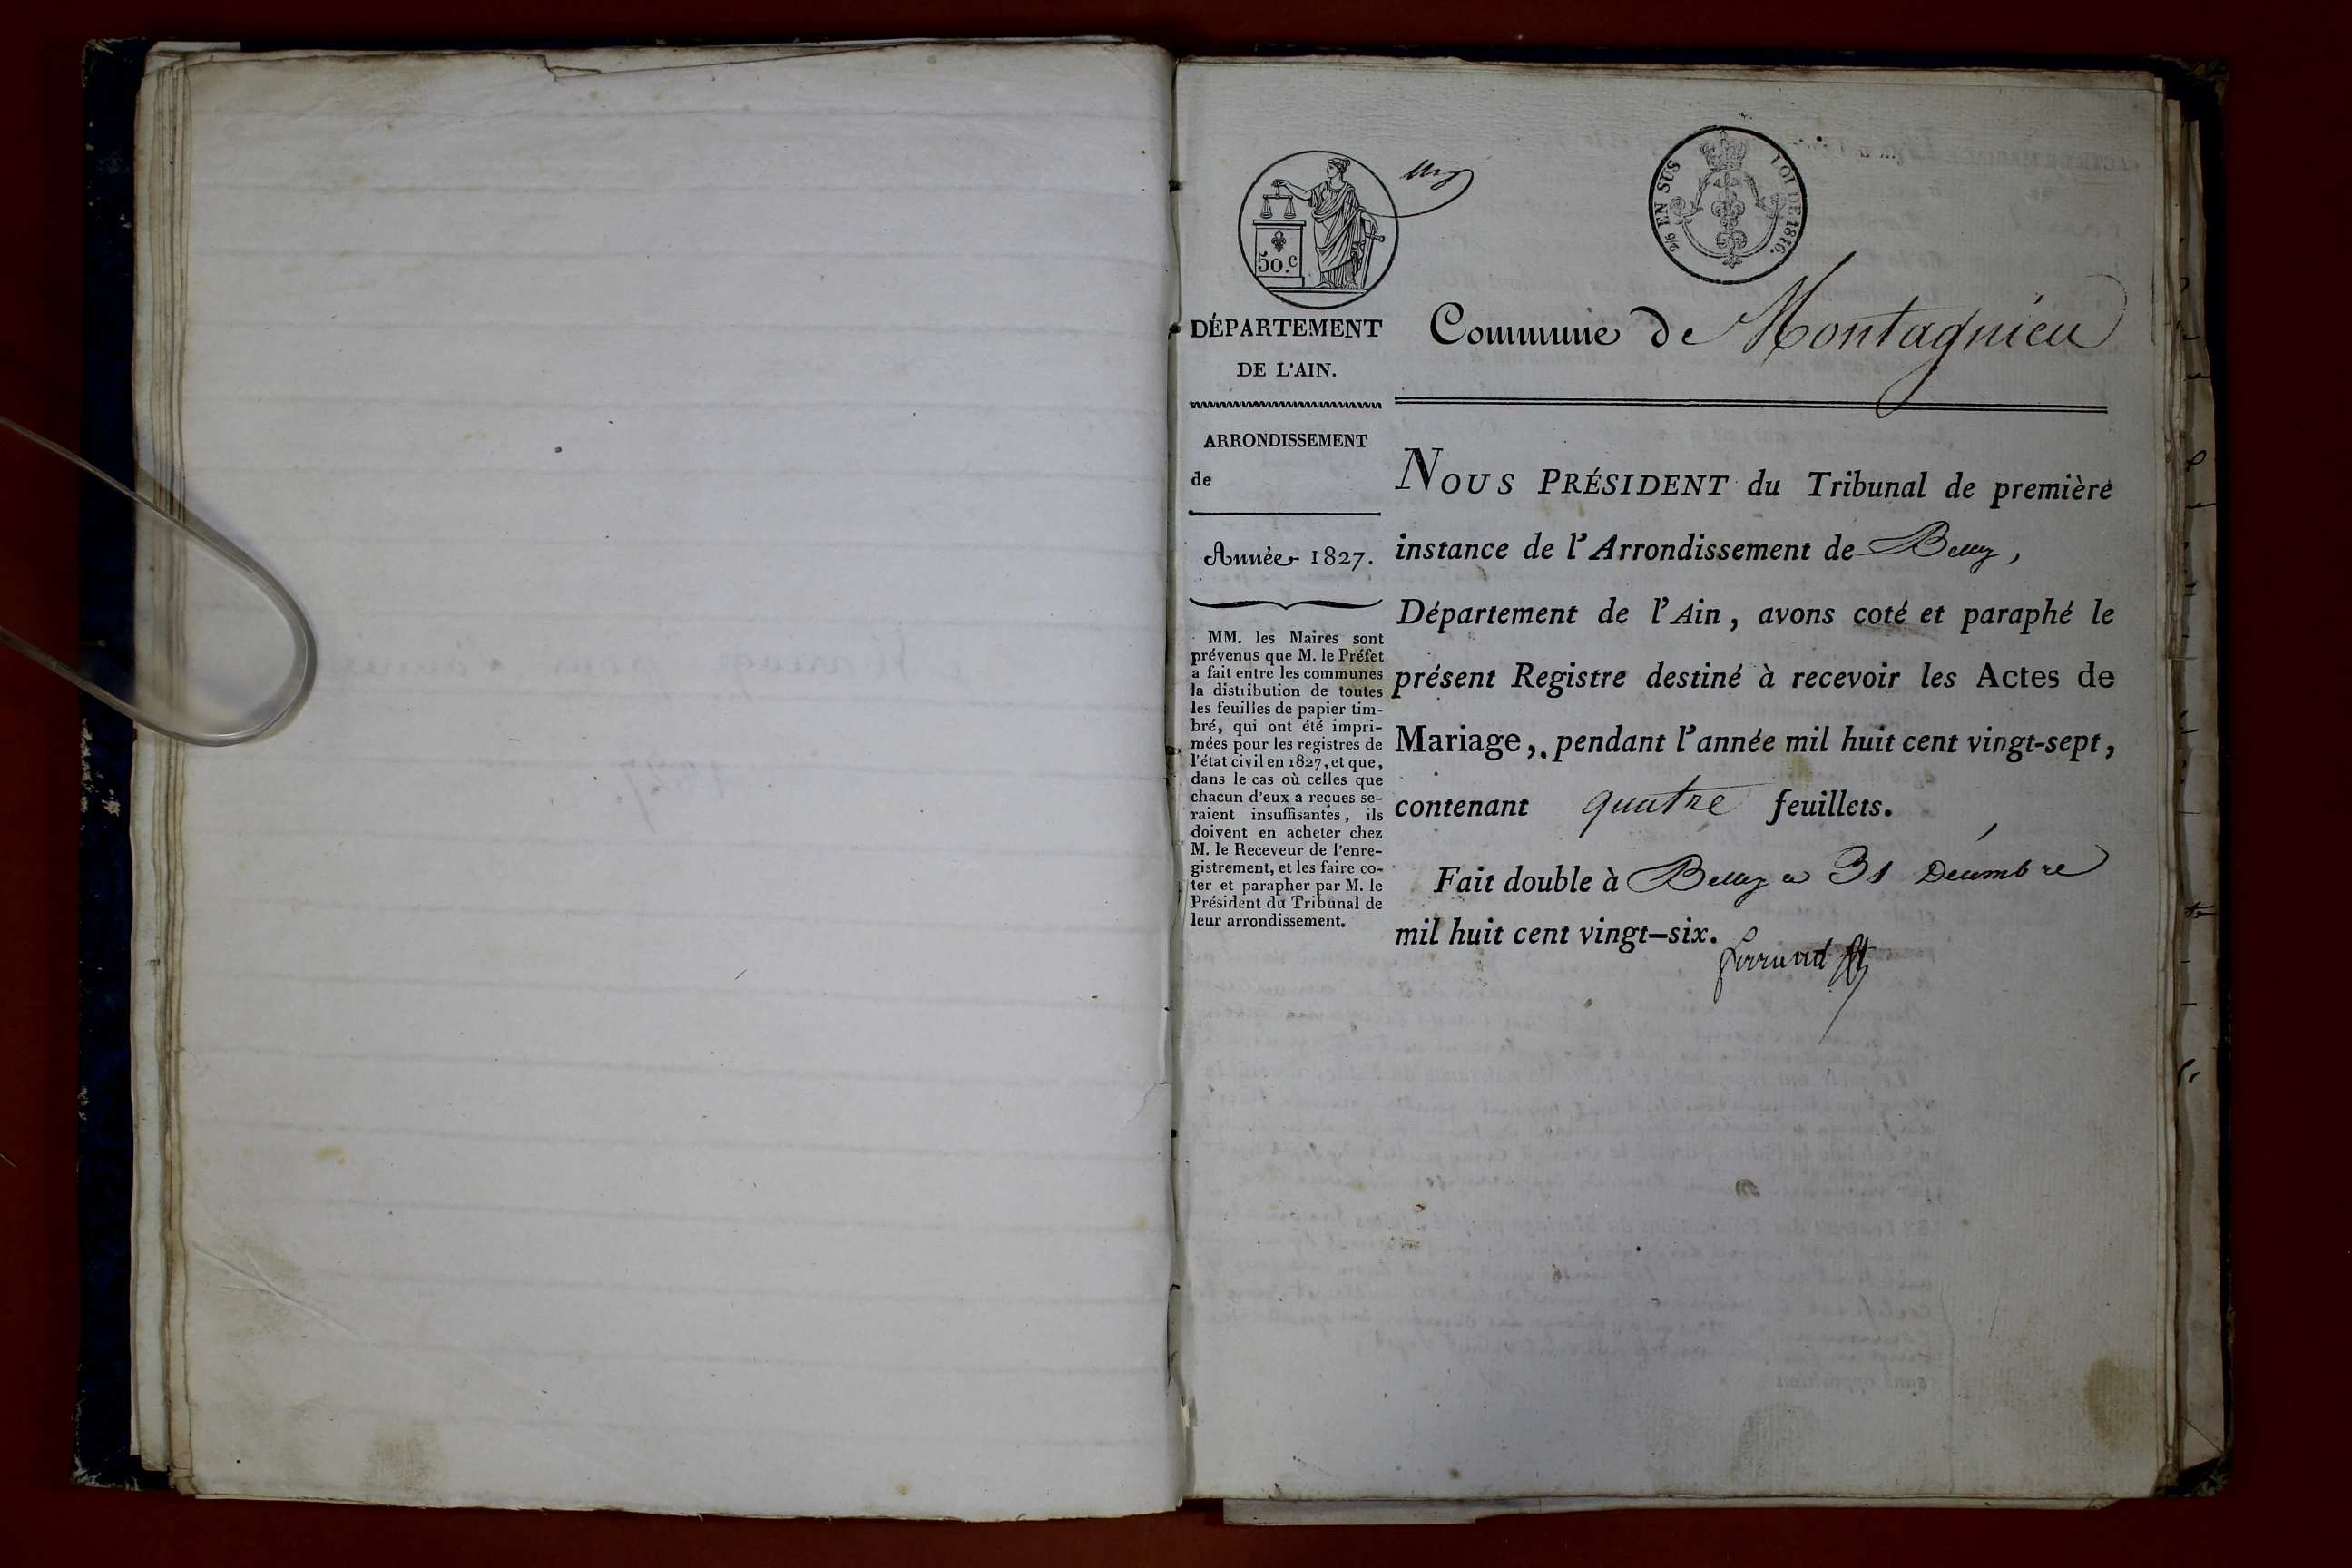 50.c
2/5 EN SUS LOI DE 1816.
DÉPARTEMENT
DE L'AIN.
ARRONDISSEMENT
de
Année 1827.
MM. les Maires sont
prévenus que M. le Préfet
a fait entre les communes
la distribution de toutes
les feuilles de papier tim-
bré, qui ont été impri-
mées pour les registres de
l'état civil en 1827, et que,
dans le cas où celles que
chacun d'eux a reçues se-
raient insuffisantes, ils
doivent en acheter chez
M. le Receveur de l'enre-
gistrement, et les faire co-
ter et parapher par M. le
Président du Tribunal de
leur arrondissement.
Commune de Montagnieu
NOUS PRÉSIDENT du Tribunal de première
instance de l'Arrondissement de Belley,
Département de l'Ain, avons coté et paraphé le
présent Registre destiné à recevoir les Actes de
Mariage, pendant l'année mil huit cent vingt-sept,
contenant quatre feuillets.
Fait double à Belley 31 Décembre
mil huit cent vingt-six.